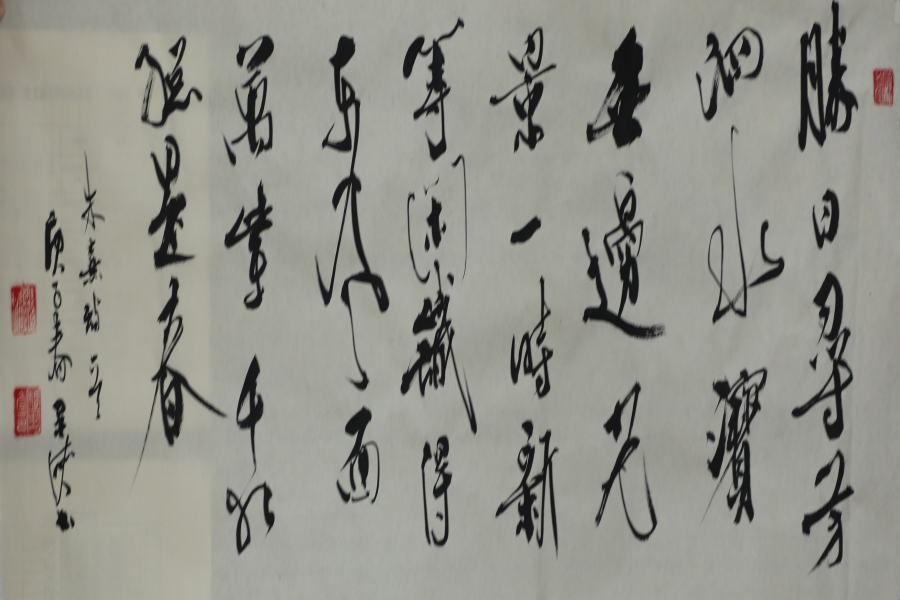 勝日尋芳
泗水濱
無邊光
景一時新
等閑識得
東風面
萬紫千紅
總是春
朱熹詩一首
庚子
書